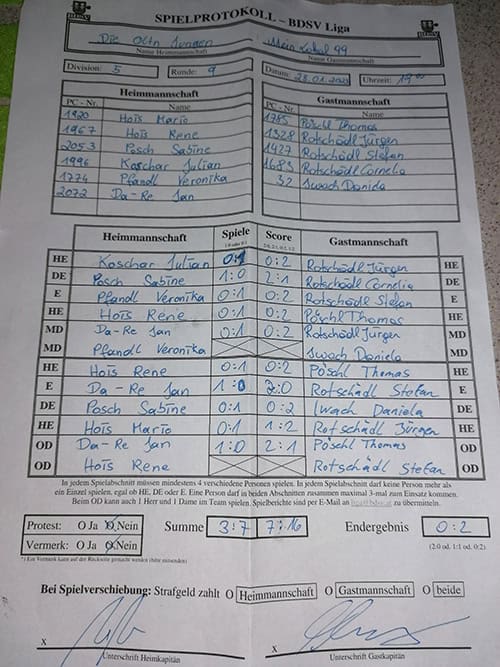 SPIELPROTOKOLL – BDSV Liga
BDSV BDSV
Die Oltn Jungen Mein Lokal 99
Name Heimmannschaft Name Gastmannschaft
Division: 5 Runde: 9 Datum: 28.01.2023 Uhrzeit: 19 00
Heimmannschaft Gastmannschaft
PC - Nr. Name PC - Nr. Name
1920 Hois Mario 1785 Pöschl Thomas
1967 Hois Rene 1328 Rotschädl Jürgen
2053 Posch Sabine 1427 Rotschädl Stefan
1996 Koschar Julian 1683 Rotschädl Cornelia
1774 Pfandl Veronika 32 Iwach Daniela
2072 Da-Re Jan
Heimmannschaft Spiele Score Gastmannschaft
1:0 oder 0:1 2:0, 2:1, 0:2, 1:2
HE Koschar Julian 0:1 0:2 Rotschädl Jürgen HE
DE Posch Sabine 1:0 2:1 Rotschädl Cornelia DE
E Pfandl Veronika 0:1 0:2 Rotschädl Stefan E
HE Hois Rene 0:1 0:2 Pöschl Thomas HE
MD Da-Re Jan 0:1 0:2 Rotschädl Jürgen MD
MD Pfandl Veronika Iwach Daniela MD
HE Hois Rene 0:1 0:2 Pöschl Thomas HE
E Da-Re Jan 1:0 2:0 Rotschädl Stefan E
DE Posch Sabine 0:1 0:2 Iwach Daniela DE
HE Hois Mario 0:1 1:2 Rotschädl Jürgen HE
OD Da-Re Jan 1:0 2:1 Pöschl Thomas OD
OD Hois Rene Rotschädl Stefan OD
In jedem Spielabschnitt müssen mindestens 4 verschiedene Personen spielen. In jedem Spielabschnitt darf keine Person mehr als
ein Einzel spielen, egal ob HE, DE oder E. Eine Person darf in beiden Abschnitten zusammen maximal 3-mal zum Einsatz kommen.
Beim OD kann auch 1 Herr und 1 Dame im Team spielen. Spielberichte sind per E-Mail an zu übermitteln.
Protest: O Ja O Nein Summe 3:7 7:16 Endergebnis 0:2
Vermerk: O Ja O Nein (2:0 od. 1:1 od. 0:2)
*) Ein Vermerk kann auf der Rückseite gemacht werden (bitte mitsenden)
Bei Spielverschiebung: Strafgeld zahlt O Heimmannschaft O Gastmannschaft O beide
X X
Unterschrift Heimkapitän Unterschrift Gastkapitän